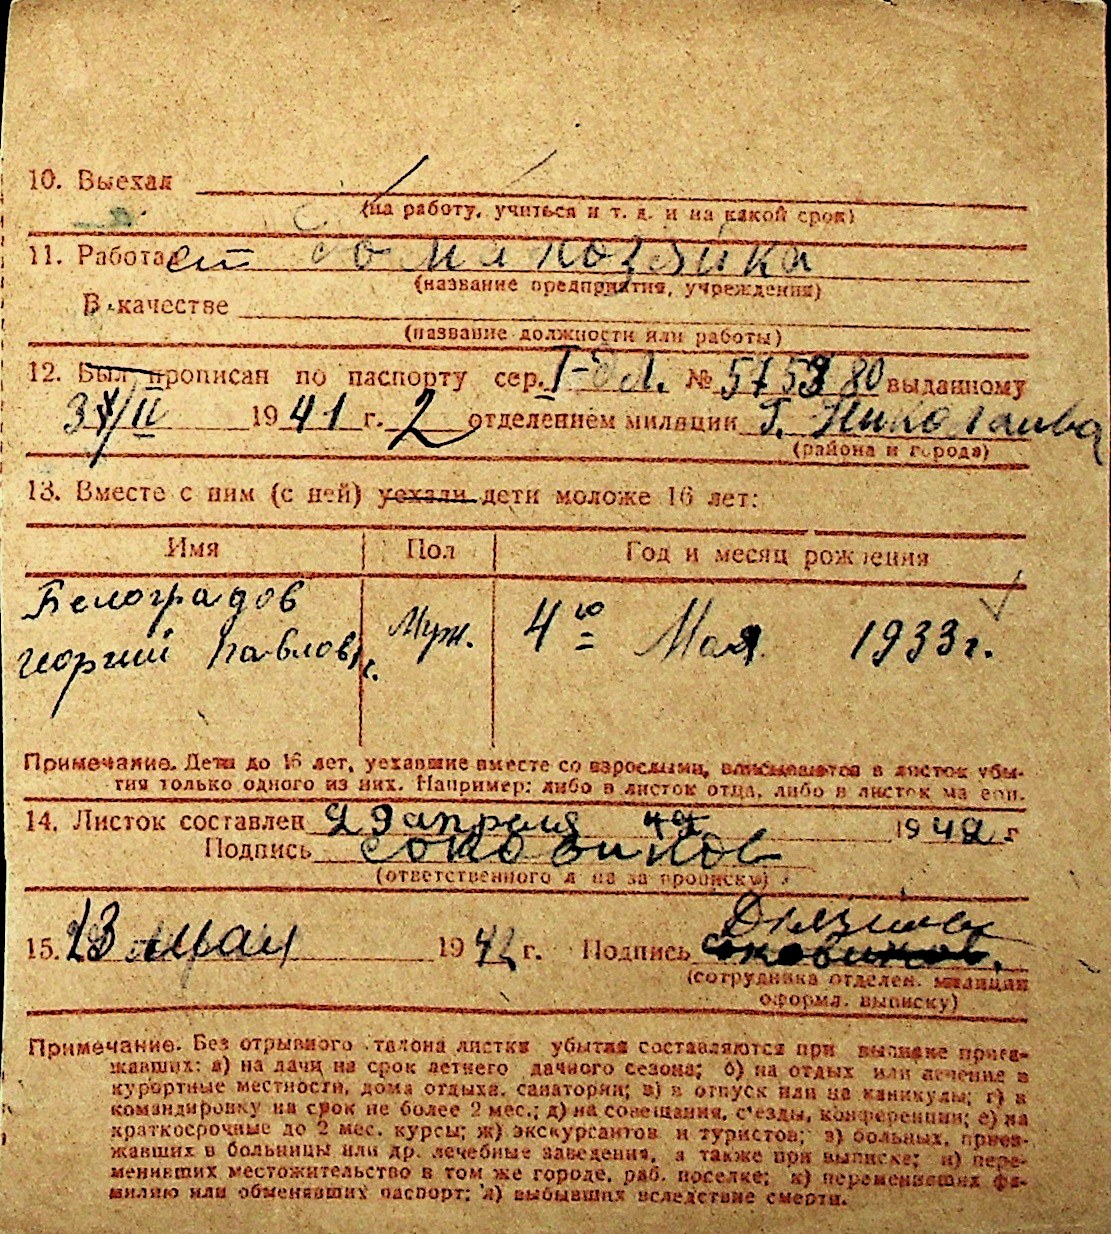 10. Выехал
(на работу, учиться и т. д. и на какой срок)
11. Работает домохозяйка
(название предприятия, учреждения)
В качестве
(название должности или работы)
12. Был прописан по паспорту сер. № выданному
1941 г. 2 отделением милиции г. Николаева
(района и города)
13. Вместе с ним (с ней) уехали дети моложе 16 лет:
Имя Пол Год и месяц рождения
Белоградов
Георгий Павлов. Муж. 4го Мая 1933 г.
Примечание. Дети до 16 лет, уехавшие вместе со взрослыми, вписываются в листок убы-
тия только одного из них. Например: либо в листок отца, либо в листок матери.
14. Листок составлен 29 апреля 1942 г
Подпись Соковиков
(ответственного лица за прописку)
15. 23 мая 1942 г. Подпись
(сотрудника отделен. милиции
оформл. выписку)
Примечание. Без отрывного талона листки убытия составляются при выписке приез-
жавших: а) на дачи на срок летнего дачного сезона; б) на отдых или лечение в
курортные местности, дома отдыха, санатории; в) в отпуск или на каникулы; г) в
командировку на срок не более 2 мес.; д) на совещания, с'езды, конференции; е) на
краткосрочные до 2 мес. курсы; ж) экскурсантов и туристов; з) больных, приез-
жавших в больницы или др. лечебные заведения, а также при выписке; и) пере-
менивших местожительство в том же городе, раб. поселке; к) переменивших фа-
милию или обменявших паспорт; л) выбывших вследствие смерти.